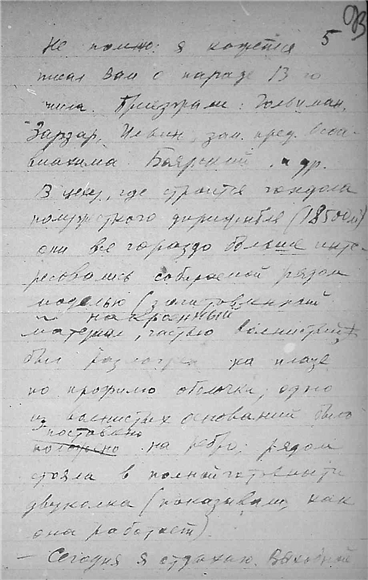 93
5
Не помню: я кажется
писал Вам о параде 13 го
числа. Приезжали: Гольцман,
Зарзар, Ильин, зам. пред. Осоа-
виахима Боярский и др.
В цеху, где строится гондола
полужесткого дирижабля (18500 м)
они все гораздо больше инте-
ресовались собираемой рядом
моделью (
и накрашенный
материал, частью волнистый
был разложен на плазе
по профилю оболочки, одно
из волнистых оснований было
поставлено
на ребро, рядом
стояла в полной готовности
двуколка (показывали, как
она работает).
– Сегодня я отдыхаю.